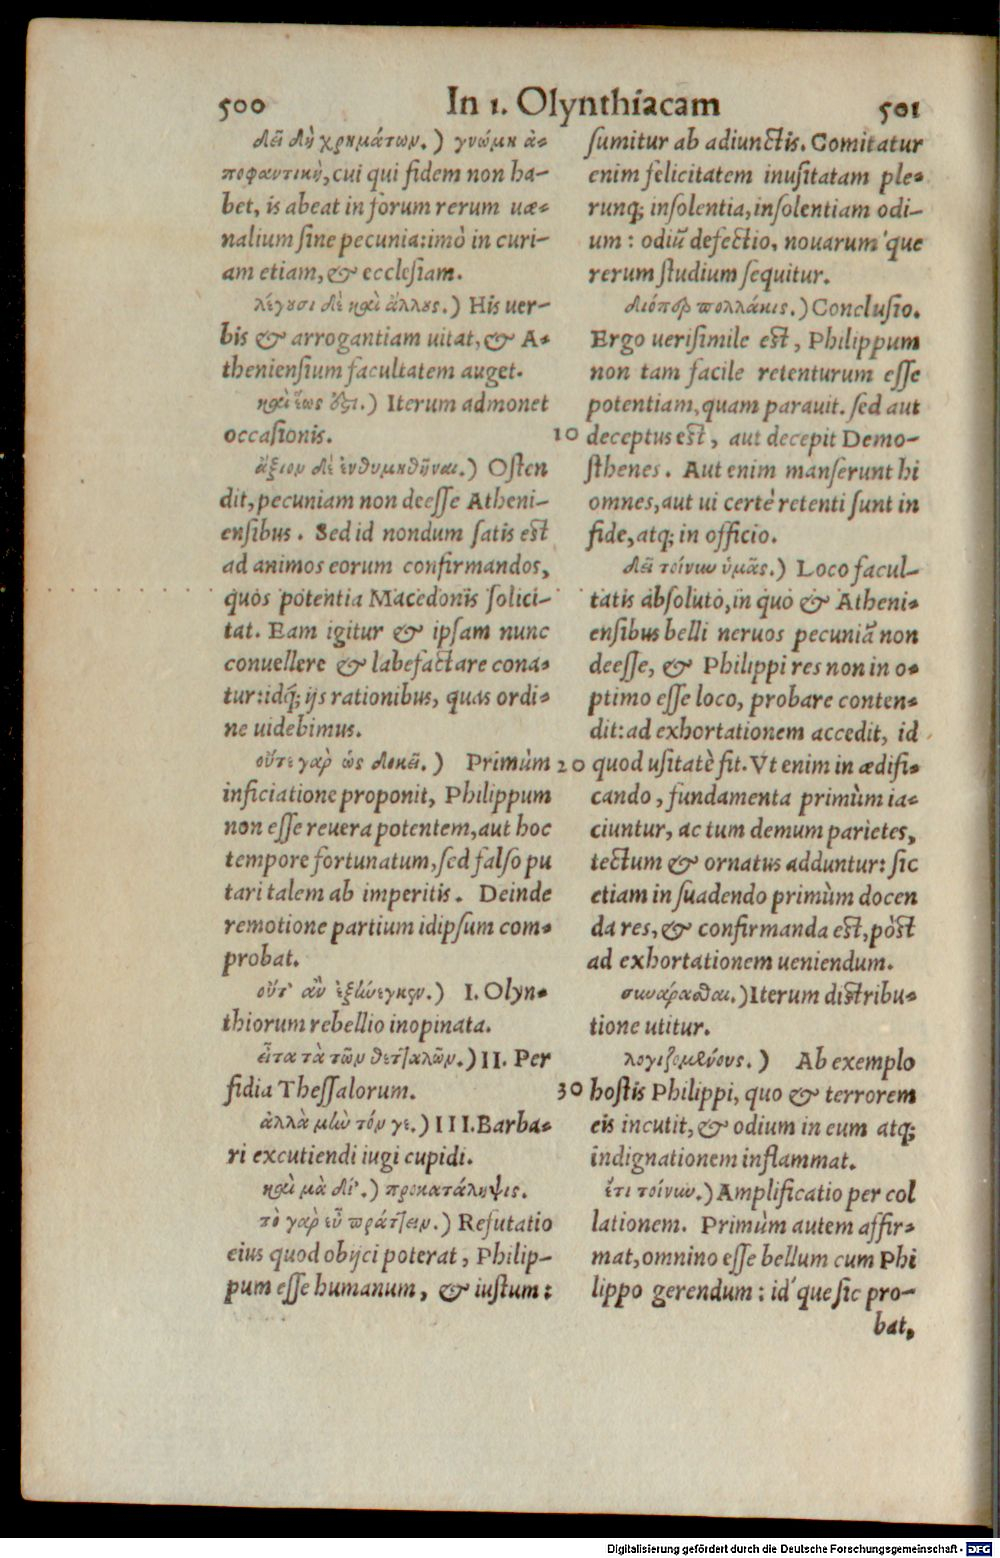 500 In 1. Olynthiacam 501
δεῖ δὴ χρημάτων.) γνώμη ἀ-
ποφαντικὴ, cui qui fidem non ha-
bet, is abeat in forum rerum uæ-
nalium sine pecunia: imò in curi-
am etiam, & ecclesiam.
λέγουσι δὲ καὶ ἄλλους.) His uer-
bis & arrogantiam uitat, & A-
theniensium facultatem auget.
καὶ ἕως ἐστι.) Iterum admonet
occasionis.
ἄξιον δὲ ἐνθυμηθῆναι.) Osten
dit, pecuniam non deesse Atheni-
ensibus. Sed id nondum satis est
ad animos eorum confirmandos,
quos potentia Macedonis solici-
tat. Eam igitur & ipsam nunc
conuellere & labefactare cona-
tur: idq́; ijs rationibus, quas ordi-
ne uidebimus.
οὔτε γὰρ ὡς δοκεῖ.) Primùm
inficiatione proponit, Philippum
non esse reuera potentem, aut hoc
tempore fortunatum, sed falso pu
tari talem ab imperitis. Deinde
remotione partium idipsum com-
probat.
οὔτ' ἂν ἐξήνεγκεν.) I. Olyn-
thiorum rebellio inopinata.
εἶτα τὰ τῶν θετταλῶν.) II. Per
fidia Thessalorum.
ἀλλὰ μὴν τόν γε.) III. Barba-
ri excutiendi iugi cupidi.
καὶ μὰ δί'.) προκατάληψις.
τὸ γὰρ εὖ πράττειν.) Refutatio
eius quod obijci poterat, Philip-
pum esse humanum, & iustum:
sumitur ab adiunctis. Comitatur
enim felicitatem inusitatam ple-
runq; insolentia, insolentiam odi-
um: odiũ defectio, nouarum'que
rerum studium sequitur.
διόπερ πολλάκις.) Conclusio.
Ergo uerisimile est, Philippum
non tam facile retenturum esse
potentiam, quam parauit. sed aut
10 deceptus est, aut decepit Demo-
sthenes. Aut enim manserunt hi
omnes, aut ui certè retenti sunt in
fide, atq; in officio.
δεῖ τοίνυν ὑμᾶς.) Loco facul-
tatis absoluto, in quo & Atheni-
ensibus belli neruos pecuniã non
deesse, & Philippi res non in o-
ptimo esse loco, probare conten-
dit: ad exhortationem accedit, id
20 quod usitatè fit. Vt enim in ædifi-
cando, fundamenta primùm ia-
ciuntur, ac tum demum parietes,
tectum & ornatus adduntur: sic
etiam in suadendo primùm docen
da res, & confirmanda est, pòst
ad exhortationem ueniendum.
συνάρασθαι.) Iterum distribu-
tione utitur.
λογιζομένους.) Ab exemplo
30 hostis Philippi, quo & terrorem
eis incutit, & odium in eum atq;
indignationem inflammat.
ἔτι τοίνυν.) Amplificatio per col
lationem. Primùm autem affir-
mat, omnino esse bellum cum Phi
lippo gerendum: id'que sic pro-
bat,
Digitalisierung gefördert durch die Deutsche Forschungsgemeinschaft - DFG